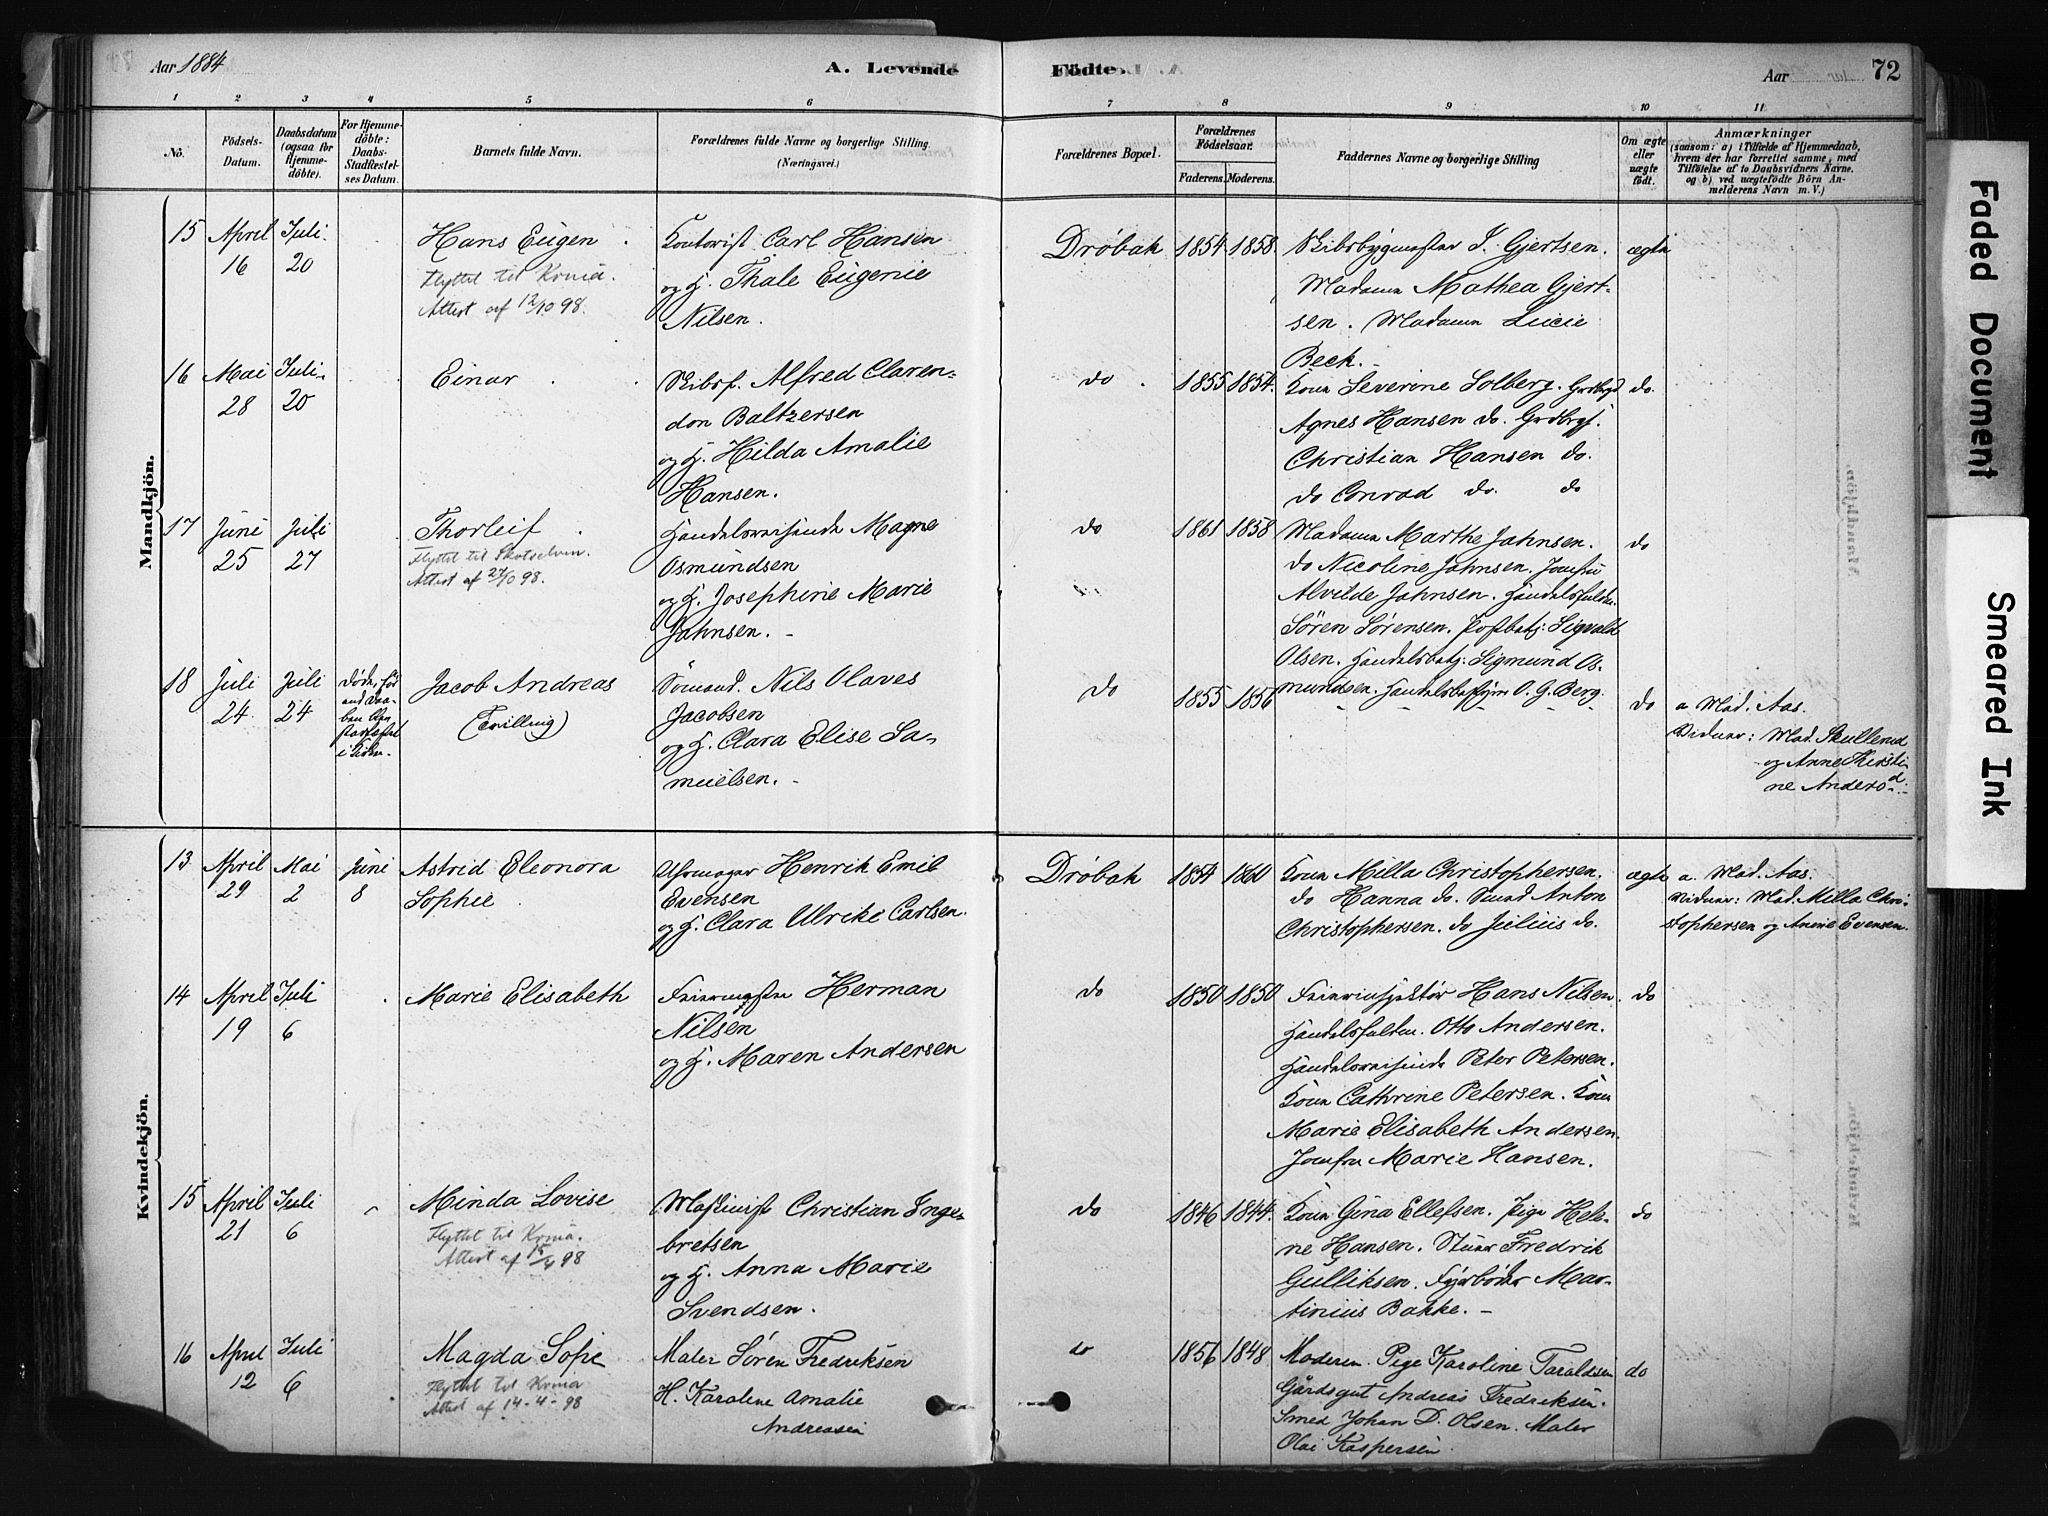 Aar 1884
A. Levende
Födte.
Aar
72
1 2 3 4 5 6 7 8 9 10 11
No.
Födsels-Datum.
Daabsdatum (ogsaa for Hjemme-döbte).
For Hjemme-döbte: Daabs-Stadfæstel-ses Datum.
Barnets fulde Navn.
Forældrenes fulde Navne og borgerlige Stilling
(Næringsvei.)
Forældrenes Bopæl.
Forældrenes Födselsaar.
Faderens. Moderens.
Faddernes Navne og borgerlige Stilling
Om ægte eller uægte födt.
Anmærkninger
(saasom: a) i Tilfælde af Hjemmedaab,
hvem der har forrettet samme, med
Tilföielse af to Daabsvidners Navne,
og b) ved uægtefödte Börn An-
melderens Navn m. V.)
Mandkjön.
15 April 16 Juli 20
Hans Eugen
Flyttet til Krnia.
Attest af 12/10 98.
Kontorist Carl Hansen
og H. Thale Eugenie
Nilsen.
Dröbak 1854 1858
Skibsbygmester J. Gjertsen.
Madame Mathea Gjert-
sen. Madame Lucie
Beck.
ægte
16 Mai 28 Juli 20
Einar
Skibsf. Alfred Claren-
don Baltzersen
og H. Hilda Amalie
Hansen.
do 1855 1854.
Kone Severine Solberg.
Agnes Hansen do.
Christian Hansen do.
do Conrad do. do
do.
17 Juni 25 Juli 27
Thorleif
Flyttet til Skotselven.
Attest af 27/10 98.
Handelsreisende Magne
Osmundsen
og H. Josephine Marie
Jahnsen.
do 1861 1858
Madame Marthe Jahnsen.
do Nicoline Jahnsen. Jomfru
Alvilde Jahnsen. Handelsfuldm.
Sören Sörensen. Postbetj: Sigvald
Olsen. Handelsbetj: Sigmund Os-
mundsen. O. G. Berg.
do
18 Juli 24 Juli 24
Jacob Andreas
(Tvilling)
Sömand. Nils Olaves
Jacobsen
og H. Clara Elise Sa-
muelsen.
do 1855 1856
do
a Mad. Aas.
Vidner: Mad. Skullerud
og Anne Kirsti-
ne Andersd.
Kvindekjön.
13 April 29 Mai 2 Juni 8
Astrid Eleonora
Sophie
Uhrmager Henrik Emil
Evensen
og H. Clara Ulrike Carlsen.
Dröbak 1854 1860
Kone Milla Christophersen.
do Hanna do. Smed Anton
Christophersen. do Julius do.
ægte
a. Mad. Aas.
Vidner: Mad. Milla Chri-
stophersen og Anine Evensen.
14 April 19 Juli 6
Marie Elisabeth
Feiermester Herman
Nilsen
og H. Maren Andersen
do 1850 1850
Feierinspektör Hans Nilsen.
Handelsfuldm. Otto Andersen.
Handelsreisende Peter Petersen.
Kone Cathrine Petersen. Kone
Marie Elisabeth Andersen.
Jomfru Marie Hansen.
do
15 April 21 Juli 6
Minda Lovise
Flyttet til Krnia.
Attest af 15/4 98
Maskinist Christian Inge-
bretsen
og H. Anna Marie
Svendsen.
do 1846 1844.
Kone Gina Ellefsen. Pige Hele-
ne Hansen. Stuer Fredrik
Gulliksen. Fyrböder Mar-
tinius Bakke.
do
16 April 12 Juli 6
Magda Sofie
Flyttet til Krnia
Attest af 14-4-98
Maler Sören Fredriksen
H. Karoline Amalie
Andreasen
do 1856 1848
Moderen. Pige Karoline Taraldsen
Gårdsgut Andreas Fredriksen.
Smed Johan D. Olsen. Maler
Olai Kaspersen.
do
Faded Document
Smeared Ink